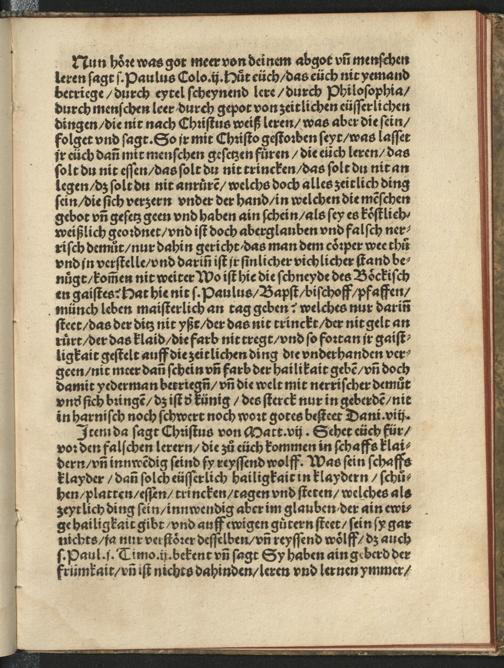 Nun höre was got meer von deinem abgot vn̄ menschen
leren sagt s. Paulus Colo.ij. Hüt eüch/das eüch nit yemand
betriege/durch eytel scheynend lere/durch Philosophia/
durch menschen leer/durch gepot von zeitlichen eüsserlichen
dingen/die nit nach Christus weiß leren/was aber die sein/
folget vnd sagt. So jr mit Christo gestorben seyt/was lasset
jr eüch dañ mit menschen gesetzen füren/die eüch leren/das
solt du nit essen/das solt du nit trincken/das solt du nit an
legen/dz solt du nit anrürē/welchs doch alles zeitlich ding
sein/die sich verzern vnder der hand/in welchen die mēschen
gebot vn̄ gesetz geen vnd haben ain schein/als sey es köstlich/
weißlich geordnet/vnd ist doch aberglauben vnd falsch ner-
risch demüt/nur dahin gericht/das man dem cörper wee thü
vnd jn verstelle/vnd dariñ ist jr sinlicher vichlicher stand be-
nügt/kom̄en nit weiter Wo ist hie die schneyde des Böckisch
en gaistes? Hat hie nit s. Paulus/Bapst/bischoff/pfaffen/
münch leben maisterlich an tag geben? welches nur dariñ
steet/das der ditz nit yßt/der das nit trinckt/der nit gelt an
rürt/der das klaid/die farb nit tregt/vnd so fortan jr gaist-
ligkait gestelt auff die zeitlichen ding die vnderhanden ver-
geen/nit meer dañ schein vn̄ farb der hailikait gebē/vn̄ doch
damit yederman betriegn̄/vn̄ die welt mit nerrischer demüt
vnd sich bringē/dz ist d künig/des sterck nur in geberdē/nit
in harnisch noch schwert noch wort gotes besteet Dani.viij.
Item da sagt Christus von Matt.vij. Sehet eüch für/
vor den falschen lerern/die zü eüch kommen in schaffs klai-
dern/vn̄ innwēdig seind sy reyssend wolff. Was sein schaffs
klayder/dañ solch eüsserlich hailigkait in klaydern/schü-
hen/platten/essen/trincken/tagen vnd steten/welches als
zeytlich ding sein/innwendig aber im glauben/der ain ewi-
ge hailigkait gibt/vnd auff ewigen gütern steet/sein sy gar
nichts/ja nur verstörer desselben/vn̄ reyssend wölff/dz auch
s. Paul.j. Timo.ij. bekent vn̄ sagt Sy haben ain geberd der
frümkait/vn̄ ist nichts dahinden/leren vnd lernen ymmer/